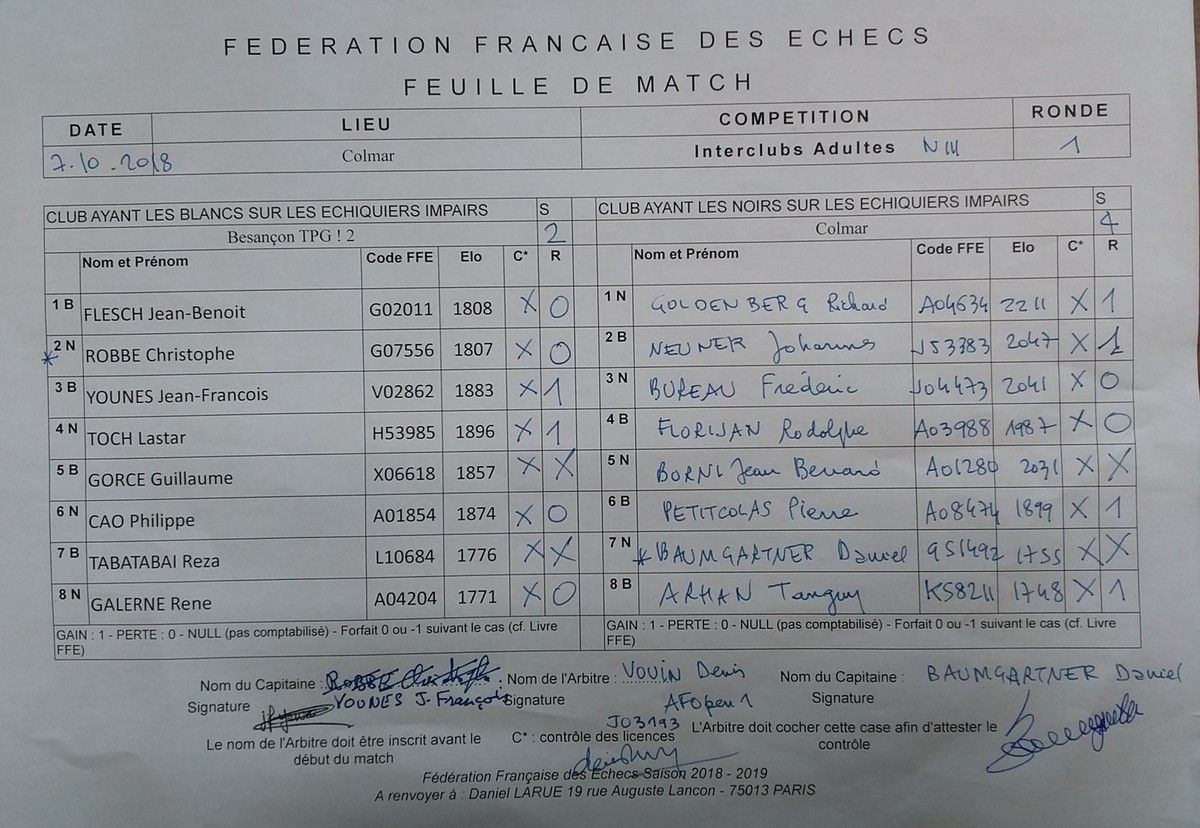 FEDERATION FRANCAISE DES ECHECS
FEUILLE DE MATCH
DATE LIEU COMPETITION RONDE
7.10.2018 Colmar Interclubs Adultes N III 1
CLUB AYANT LES BLANCS SUR LES ECHIQUIERS IMPAIRS S CLUB AYANT LES NOIRS SUR LES ECHIQUIERS IMPAIRS S
Besançon TPG ! 2 2 Colmar 4
Nom et Prénom Code FFE Elo C* R Nom et Prénom Code FFE Elo C* R
1 B FLESCH Jean-Benoit G02011 1808 X 0 1 N GOLDENBERG Richard A04634 2211 X 1
* 2 N ROBBE Christophe G07556 1807 X 0 2 B NEUNER Johannes J53383 2047 X 1
3 B YOUNES Jean-Francois V02862 1883 X 1 3 N BUREAU Frédéric J04473 2041 X 0
4 N TOCH Lastar H53985 1896 X 1 4 B FLORIJAN Rodolphe A03988 1987 X 0
5 B GORCE Guillaume X06618 1857 X X 5 N BORNI Jean Bernard A01280 2031 X X
6 N CAO Philippe A01854 1874 X 0 6 B PETITCOLAS Pierre A08474 1899 X 1
7 B TABATABAI Reza L10684 1776 X X 7 N * BAUMGARTNER Daniel G51492 1755 X X
8 N GALERNE Rene A04204 1771 X 0 8 B ARHAN Tanguy K58211 1748 X 1
GAIN : 1 - PERTE : 0 - NULL (pas comptabilisé) - Forfait 0 ou -1 suivant le cas (cf. Livre FFE) GAIN : 1 - PERTE : 0 - NULL (pas comptabilisé) - Forfait 0 ou -1 suivant le cas (cf. Livre FFE)
Nom du Capitaine : ROBBE Christophe Nom de l'Arbitre : VOUIN Denis Nom du Capitaine : BAUMGARTNER Daniel
Signature YOUNES J-François Signature AFOpen 1 Signature
J03193
Le nom de l'Arbitre doit être inscrit avant le début du match C* : contrôle des licences L'Arbitre doit cocher cette case afin d'attester le contrôle
Fédération Française des Echecs Saison 2018 - 2019
A renvoyer à : Daniel LARUE 19 rue Auguste Lancon - 75013 PARIS